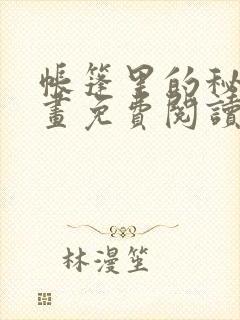 帳篷里的秘
畫免費閱讀
林漫笙